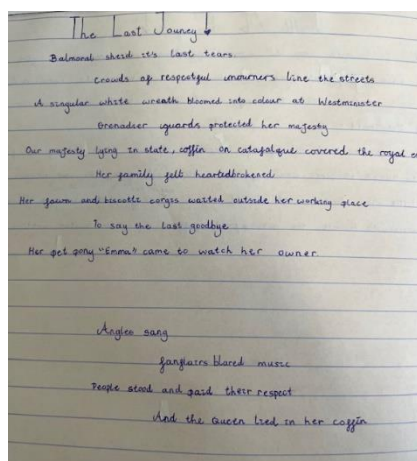 The Last Jouney
Balmoral sheid it's last tears
Crowds of respectful mourners line the streets
A singular white wreath bloomed into colour at Westminster
Grenadier guards protected her majesty
Our majesty lying in state, coffin on catafalque covered the royal
Her family felt heartedbrokened
Her fawn and biscotti corgis waited outside her working place
To say the last goodbye
Her pet pony "Emma" came to watch her owner.
Angles sang
fanglairs blared music
People stood and paid their respect
And the Queen lied in her coffin